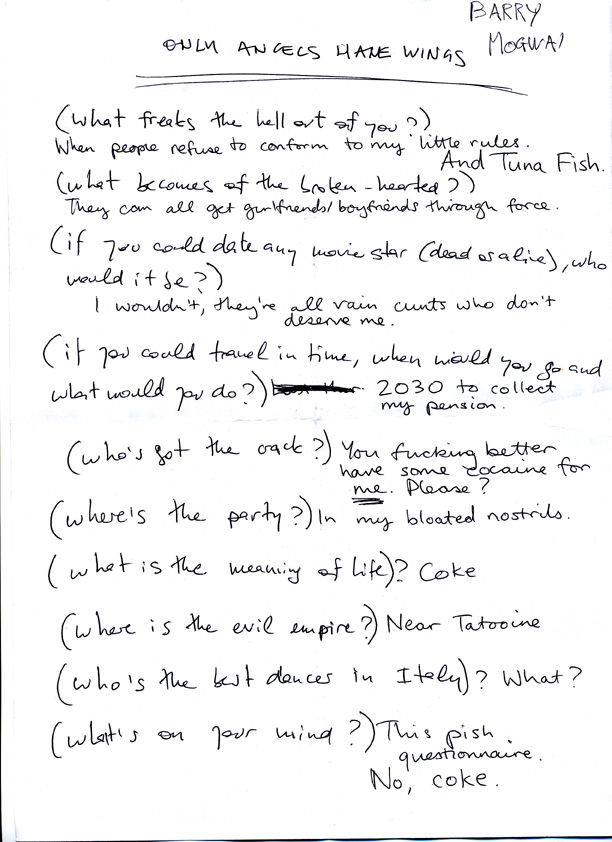 BARRY
MOGWAI
ONLY ANGELS HAVE WINGS
(what freaks the hell out of you?)
When people refuse to conform to my little rules.
And Tuna Fish.
(what becomes of the broken-hearted?)
They can all get girlfriends/boyfriends through force.
(if you could date any movie star (dead or alive), who
would it be?)
I wouldn't, they're all vain cunts who don't
deserve me.
(if you could travel in time, when would you go and
what would you do?) 2030 to collect
my pension.
(who's got the crack?) You fucking better
have some cocaine for
me. Please?
(where's the party?) In my bloated nostrils.
(what is the meaning of life)? Coke
(where is the evil empire?) Near Tatooine
(who's the best dances in Italy)? What?
(what's on your mind?) This pish
questionnaire.
No, coke.